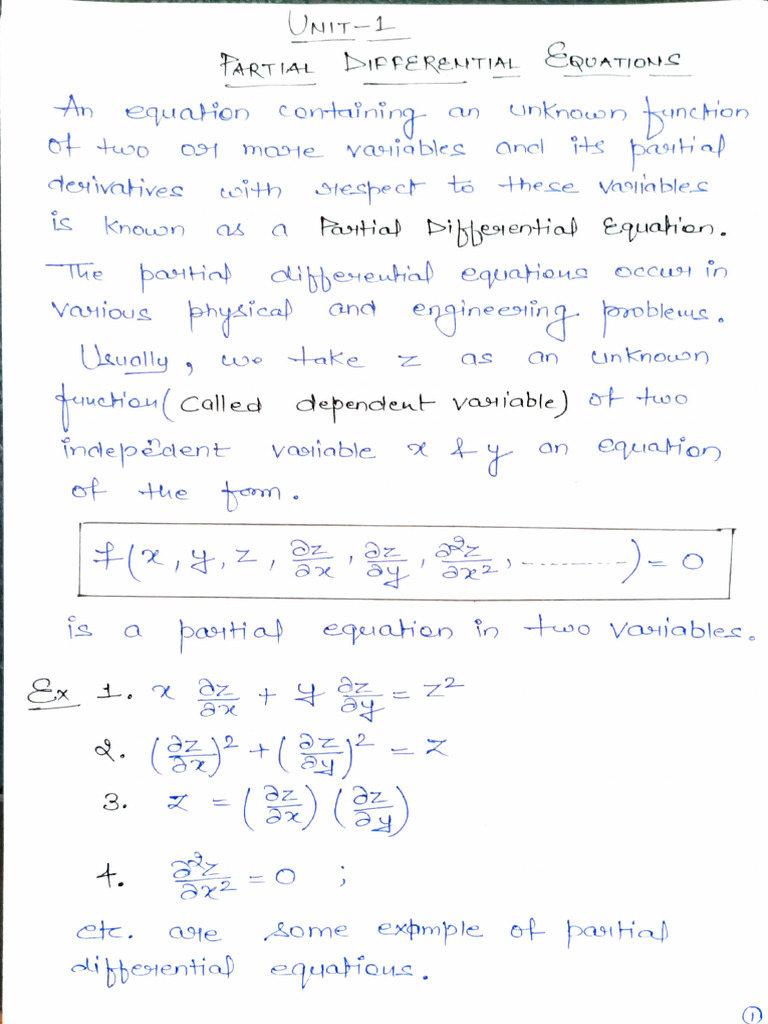 UNIT-1
PARTIAL DIFFERENTIAL EQUATIONS
An equation containing an unknown function
of two or more variables and its partial
derivatives with respect to these variables
is known as a Partial Differential Equation.
The partial differential equations occur in
various physical and engineering problems.
Usually, we take z as an unknown
function (called dependent variable) of two
indepedent variable x & y an equation
of the form.
f(x, y, z, ∂z/∂x, ∂z/∂y, ∂²z/∂x², ..........) = 0
is a partial equation in two variables.
Ex 1. x ∂z/∂x + y ∂z/∂y = z²
2. (∂z/∂x)² + (∂z/∂y)² = z
3. z = (∂z/∂x) (∂z/∂y)
4. ∂²z/∂x² = 0 ;
etc. are some example of partial
differential equations.
1